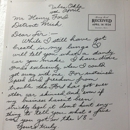 Tulsa Okla
10 April
Mr. Henry Ford
Detroit Mich.
Dear Sir: —
While I still have got
breath in my lungs I
will tell you what a dandy
car you make. I have drove
Fords exclusively when I could
get away with one. For sustained
speed and freedom from
trouble the Ford has got ever
other car skinned and even if
my business hasent been
strickly legal it don't hurt any
thing to tell you what a fine car
you got in the V8 —
Yours truly
RECEIVED